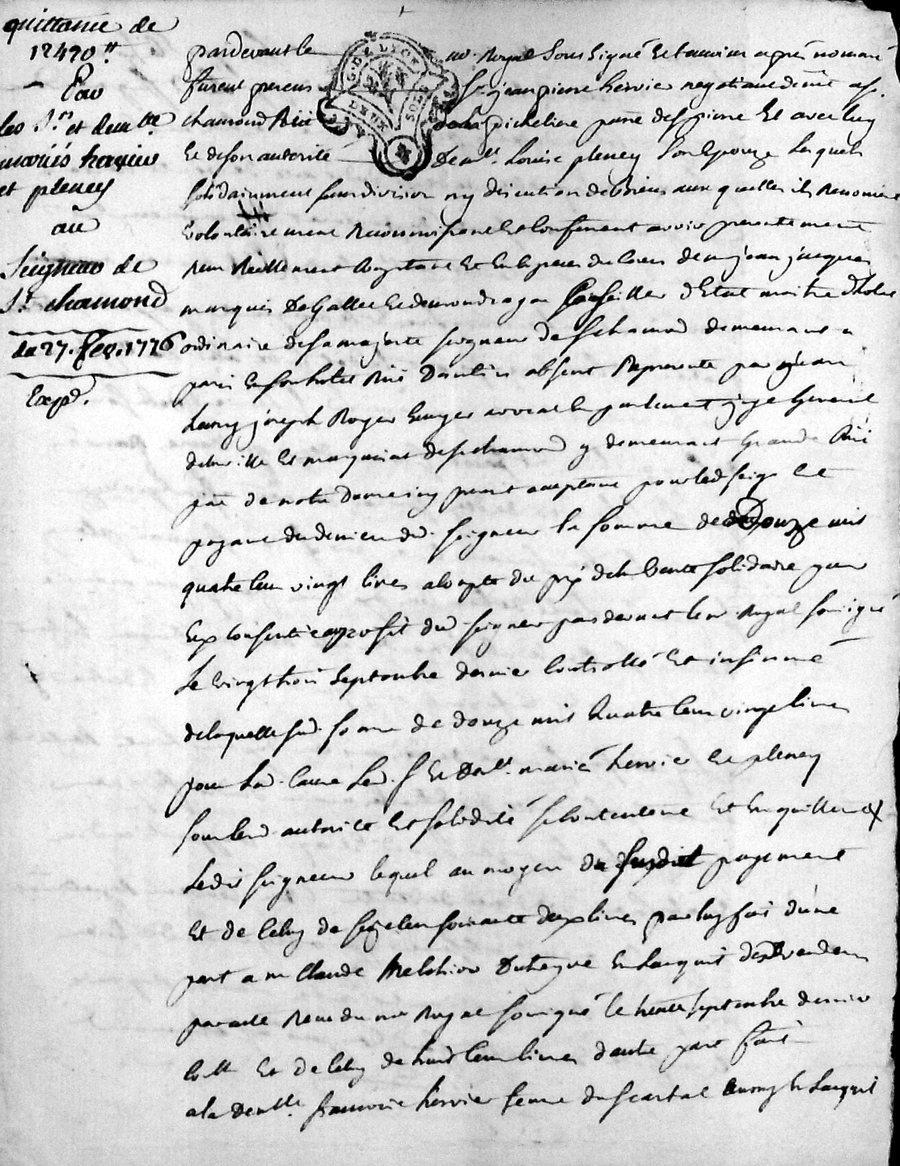 quittance de
12480ᵗᵗ
Par
les Sʳ et demˡˡᵉ
mariés hervier
et pleney
au
Seigneur de
Sᵗ chamond
du 27. fev. 1776
Expᵉ.
G. DE LYON
DEUX SOLS
pardevant le noʳᵉ Royal Soussigné Et temoins après nommés
furent presens Sʳ jean pierre hervier negotiant demᵗ a Sᵗ
chamond Rüe de la
Et de son autorité Demˡˡᵉ Louise pleney Son Epouze Lesquels
Solidairement sans division ny discution de biens aux quelles ils Renoncent
volontairement Reconnoissent et confessent avoir presentement
Reçu Reellement Comptant Et en Especes de cours de mʳᵉ jean jacques
marquis De Gallet Et de mondragon Conseiller d'Etat maitre d'hotel
ordinaire de sa majesté seigneur de Sᵗ chamond demeurant a
paris En son hotel Rüe D'antin absent Represente par mʳᵉ jean
Louis joseph Roger avocat En parlement juge General
de la ville Et marquisat de Sᵗ chamond y demeurant Grande Rüe
psse de notre Dame icy present acceptant pour led seigʳ Et
payant des deniers dud. seigneur la somme de Douze mil
quatre cent vingt livres a compte du prix de la Vente Solidaire par
Eux Consentie au profit dud seigneur pardevant le noʳᵉ Royal soussigné
Le vingt trois Septembre dernier Controllé Et insinué
de laquelle susd. somme de Douze mil Quatre Cent vingt livres
pour lad. Cause Led. Sʳ Et Demˡˡᵉ mariés hervier Et pleney
sous lesd autorité Et solidité se contentent Et En quittent
Ledit seigneur lequel au moyen du susdit payement
Et de celuy de seize Cent soixante deux livres par luy fait d'une
part a mʳᵉ Claude Melchior En l'acquit des Vendeurs
par acte Recu du noʳᵉ Royal soussigné le trente septembre dernier
Collé Et de celuy de huit Cent livres d'autre part fait
a la Demˡˡᵉ francoise hervier femme du Sʳ aussy En l'acquit